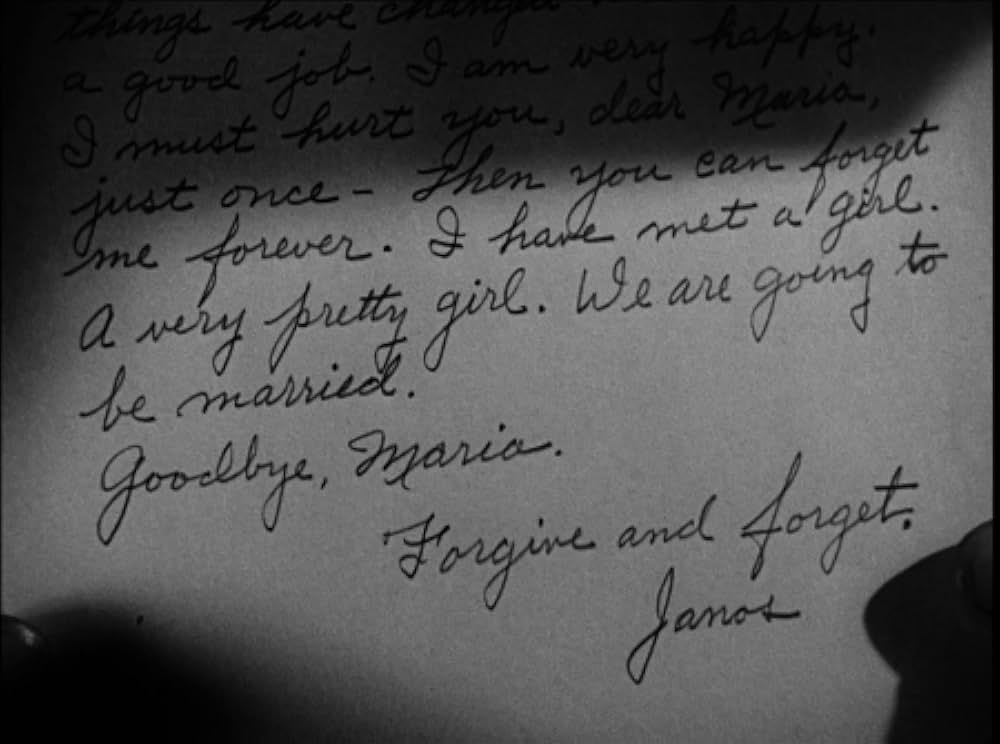 things have changed
a good job. I am very happy.
I must hurt you, dear Maria,
just once - Then you can forget
me forever. I have met a girl.
A very pretty girl. We are going to
be married.
Goodbye, Maria.
Forgive and forget.
Janos